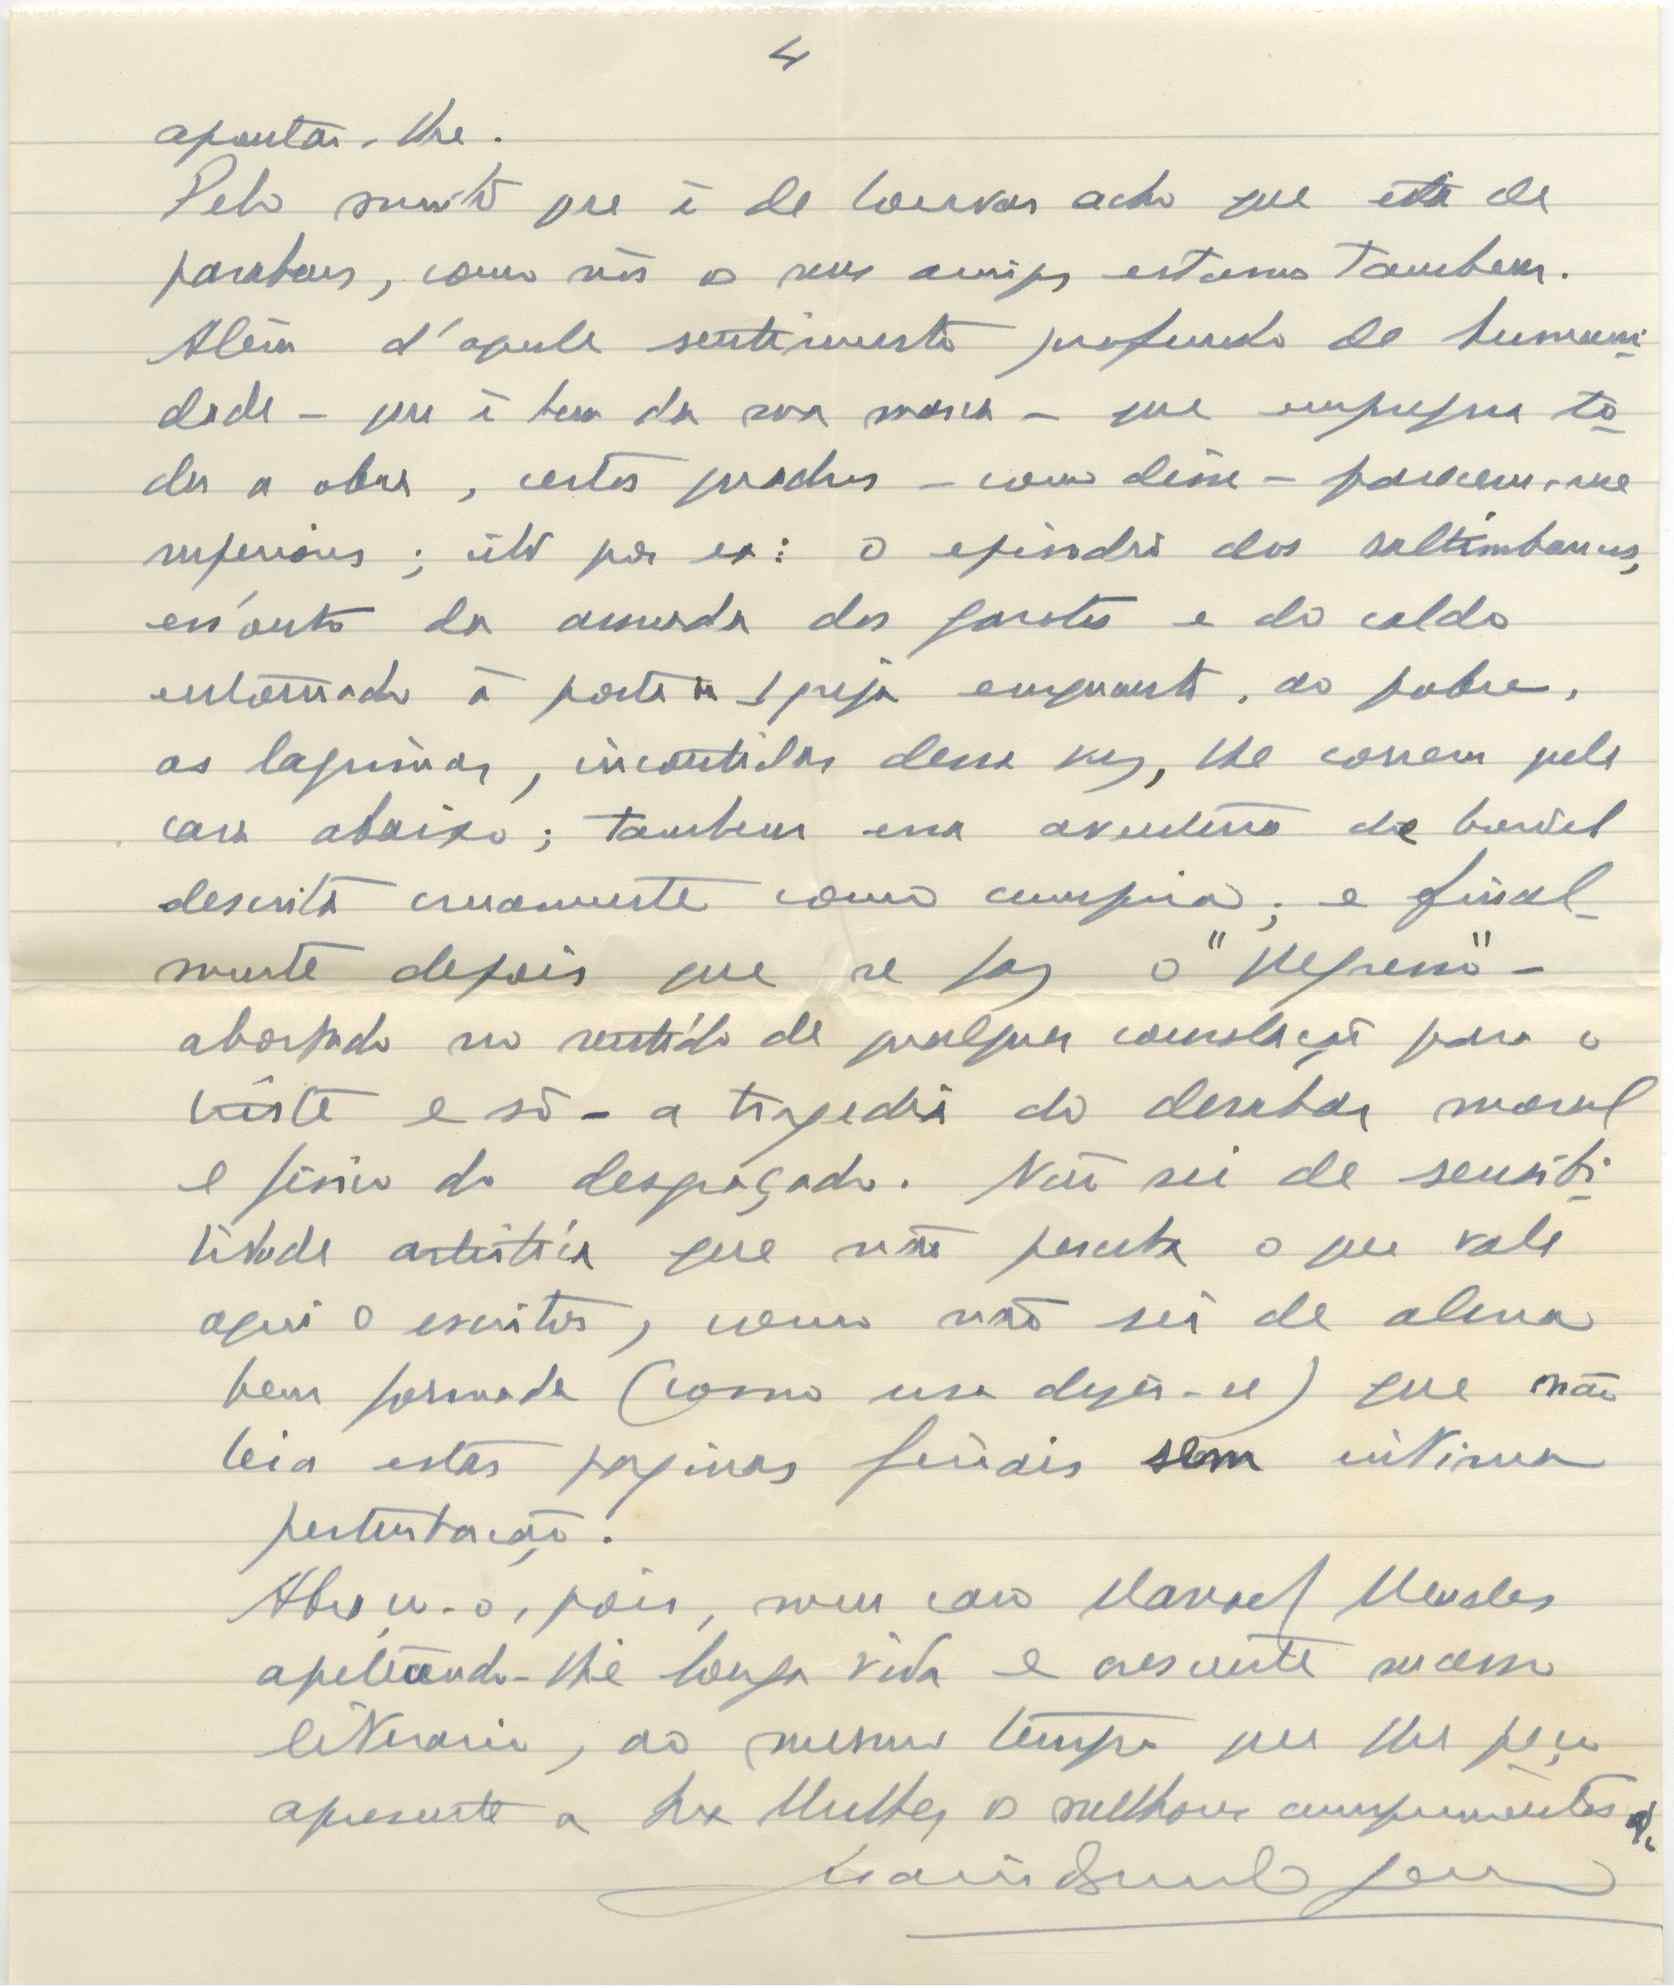 4
apontar-lhe.
Pelo muito que é de louvar acho que está de
parabens, como nós os seus amigos estamos tambem.
Além d'aquele sentimento profundo de humani-
dade - que é bem da sua marca - que impregna to-
da a obra, certos quadros - como disse - parecem-me
superiores; cito por ex: o episodio dos saltimbancos,
en'outro da assuada dos garotos e do caldo
entornado á porta da Igreja enquanto, ao pobre,
as lagrimas, incontidas dessa vez, lhe correm pela
cara abaixo; tambem essa aventura de bordel
descrita cruamente como cumpria; e final-
mente depois que se faz o "Regresso" -
abortado no sentido de qualquer consolação para o
triste e só - a tragedia do desabar moral
e fisico do desgraçado. Não sei de sensibi-
lidade artistica que não perceba o que vale
aqui o escritor, como não sei de alma
bem formada (como usa dizer-se) que não
leia estas paginas finais sem intima
perturbação.
Abraço-o, pois, meu caro Manuel Mendes
apetecendo-lhe longa vida e crescente sucesso
literario, ao mesmo tempo que lhe peço
apresente a sua Mulher os melhores cumprimentos do